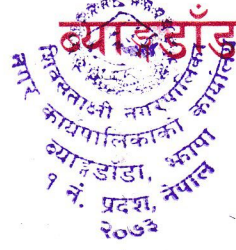 ब्याङडाँड
शिवसताक्षी नगरपालिका
नगर कार्यपालिकाको कार्यालय
ब्याङडाँडा, झापा
१ नं. प्रदेश, नेपाल
२०७३